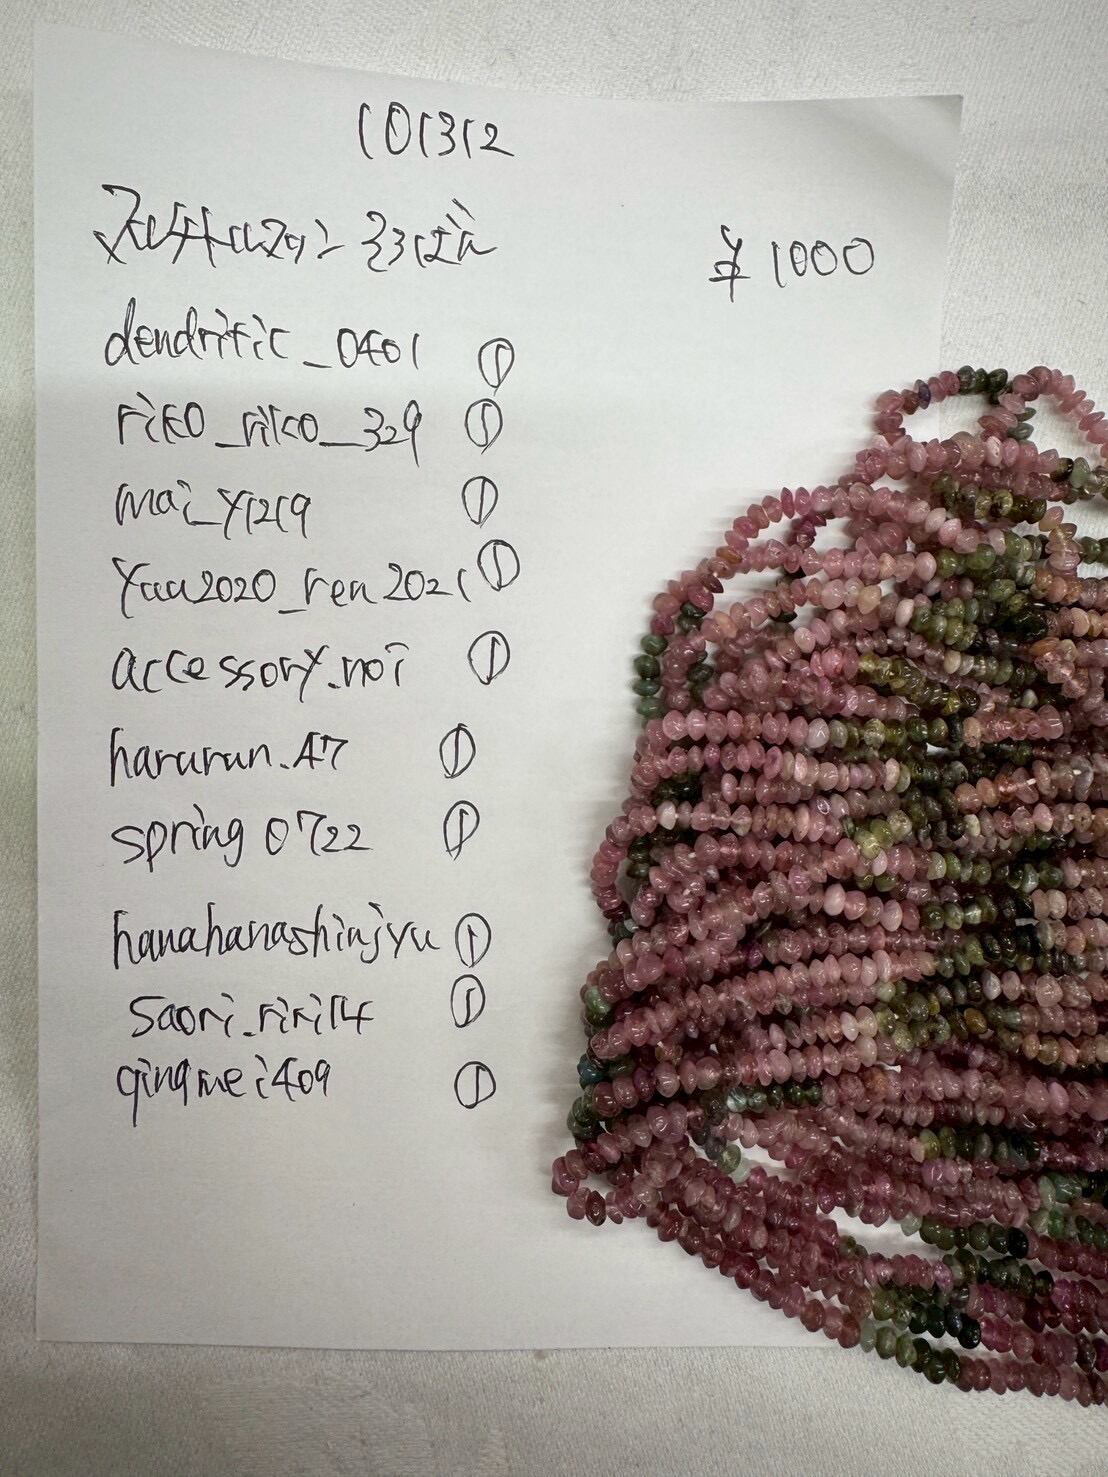 101312
¥1000
dendritic_0401 ①
riko_riko_329 ①
mai_y1219 ①
yuu2020_ren2021 ①
accessory.noi ①
hararan.47 ①
spring0722 ①
hanahanashinjyu ①
saori.riri14 ①
qingmei409 ①